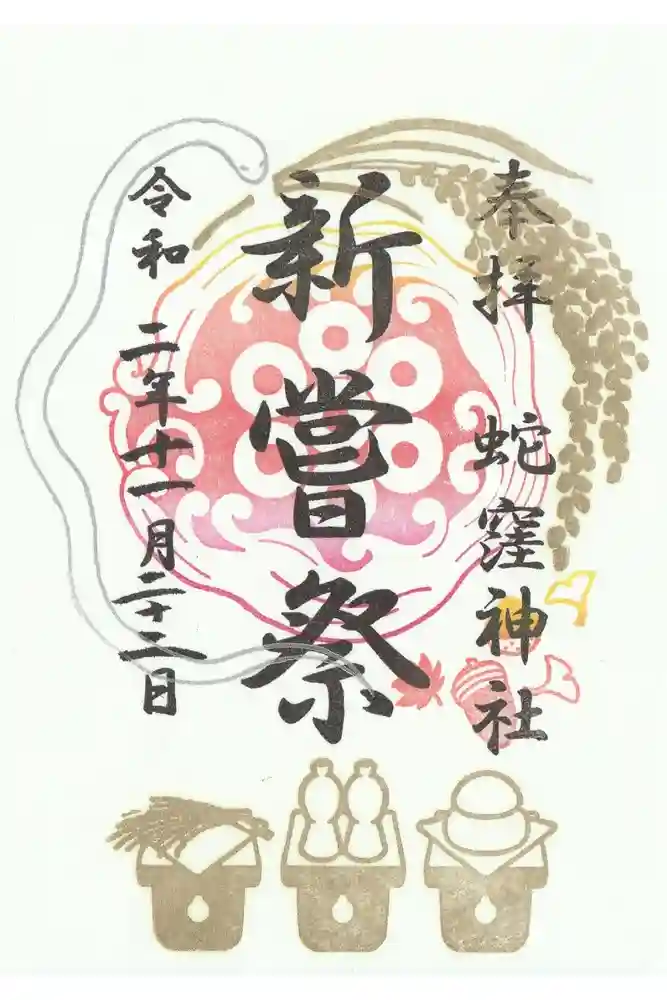 奉拝
蛇窪神社
新嘗祭
令和二年十一月二十二日